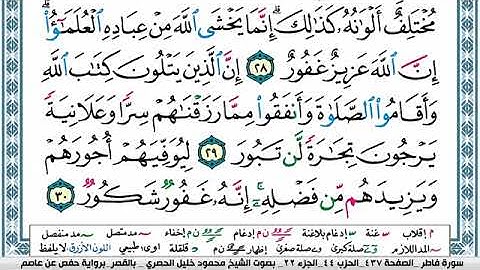 مُخْتَلِفٌ أَلْوَٰنُهُۥ كَذَٰلِكَ ۗ إِنَّمَا يَخْشَى ٱللَّهَ مِنْ عِبَادِهِ ٱلْعُلَمَـٰٓؤُا۟ ۗ
إِنَّ ٱللَّهَ عَزِيزٌ غَفُورٌ ٢٨ إِنَّ ٱلَّذِينَ يَتْلُونَ كِتَـٰبَ ٱللَّهِ
وَأَقَامُوا۟ ٱلصَّلَوٰةَ وَأَنفَقُوا۟ مِمَّا رَزَقْنَـٰهُمْ سِرًّا وَعَلَانِيَةً
يَرْجُونَ تِجَـٰرَةً لَّن تَبُورَ ٢٩ لِيُوَفِّيَهُمْ أُجُورَهُمْ
وَيَزِيدَهُم مِّن فَضْلِهِۦٓ ۚ إِنَّهُۥ غَفُورٌ شَكُورٌ ٣٠
م إقلاب س غنة س إدغام بلاغنة ن م إدغام ن م إخفاء مد متصل مد منفصل
مد اللازم صلة كبرى صلة صغرى إظهار ن م قلقلة ا و ى طبيعي اللون الأزرق لا يلفظ
سورة فاطر _الصفحة ٤٣٧_ الحزب ٤٤ _الجزء ٢٢_ بصوت الشيخ محمود خليل الحصري _ بالقصر_برواية حفص عن عاصم